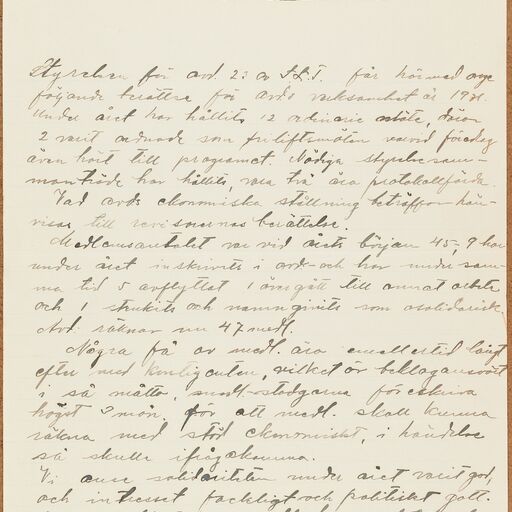 Styrelsen för avd. 23 av S.L.F. får härmed avge
följande berättelse för avds verksamhet år 1921.
Under året har hållits 12 ordinarie möte, därav
2 varit ordnade som friluftsmöten varvid föredrag
även hört till programet. Nödiga styrelsesam-
manträde har hållits, vara två äro protokollförda.
Vad avds ekonomiska ställning beträffar hän-
visas till revisorernas berättelse.
Medlemsantalet var vid årets början 45, 9 har
under året inskrivits i avd- och har under sam-
ma tid 5 avflyttat 1 övergått till annat arbete
och 1 strukits och namngivits som osolidarisk.
Avd. räknar nu 47 medl.
Några få av medl. äro emellertid långt
efter med kontingenten, vilket är beklagansvärt
i så måtto, att stadgarna föreskriva
högst 3 mån. för att medl. skall kunna
räkna med stöd ekonomiskt, i händelse
så skulle ifrågakomma.
Vi anse solidariteten under året varit god,
och intresset fackligt och politiskt gott.